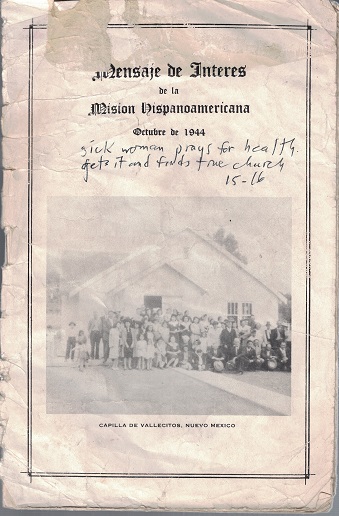 Mensaje de Interes
de la
Mision Hispanoamericana
Octubre de 1944
sick woman prays for health.
gets it and finds true church
15-16
CAPILLA DE VALLECITOS, NUEVO MEXICO